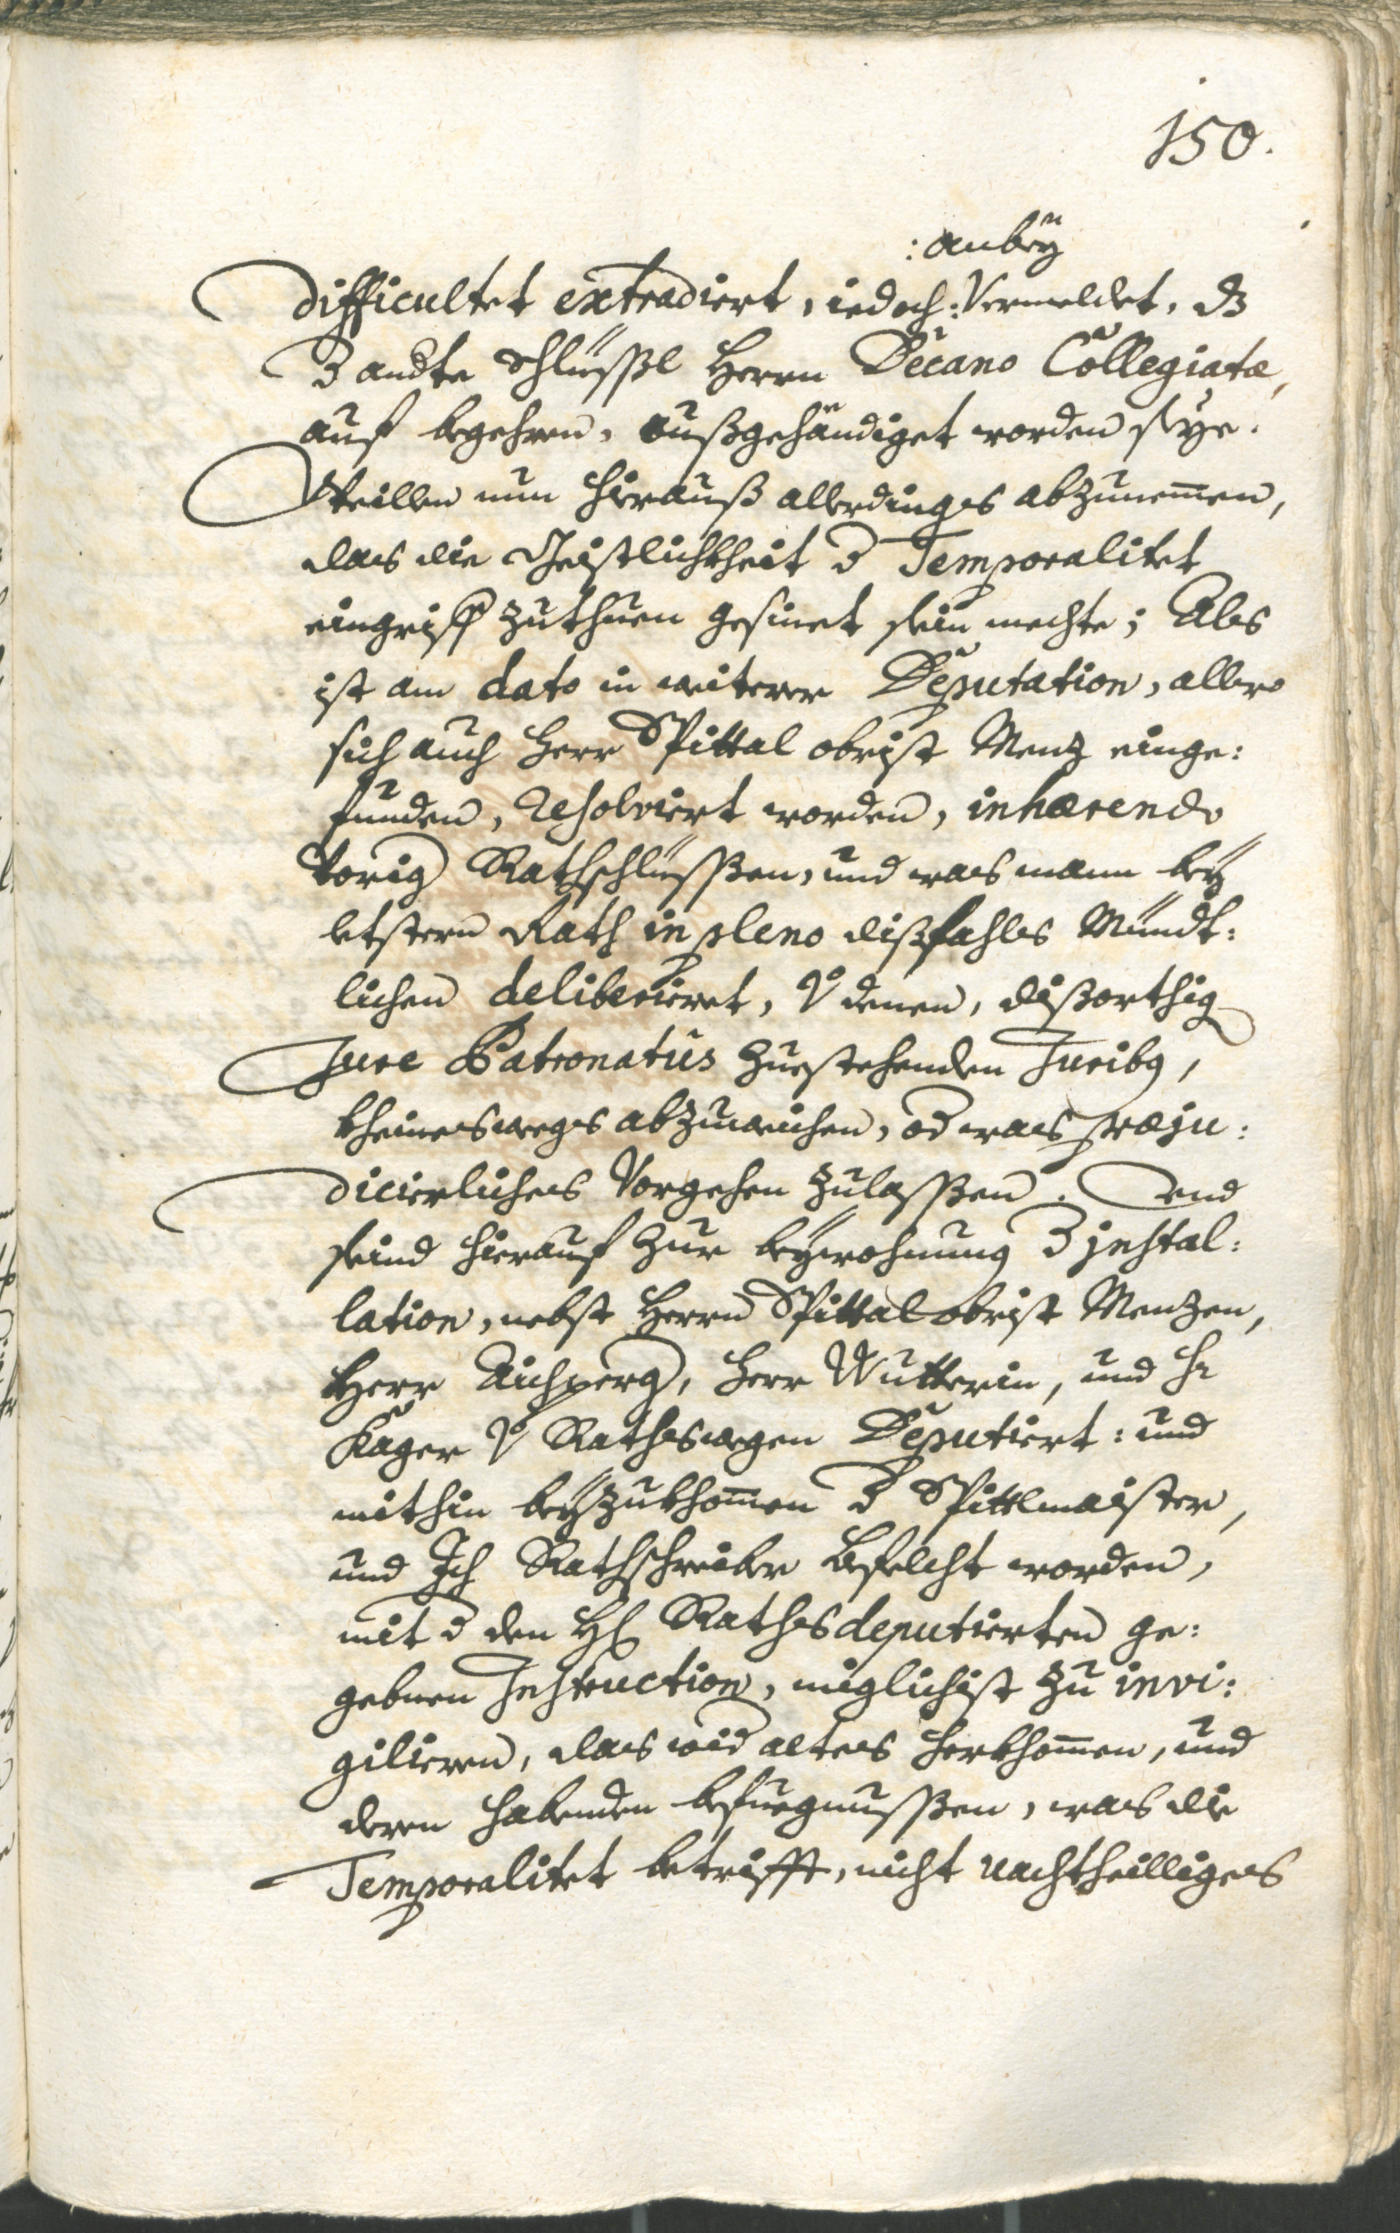 150.
: anbeÿ
difficultet extradiert, iedoch: Vermeldet, dz
d andte Schlüssl Herrn Decano Collegiatæ,
auf begehren, außgehändiget worden seye.
Weillen nun hierauß allerdinges abzunemen,
das die Geistlichkheit d Temporalitet
eingriff zuthuen gesinet sein mechte; Als
ist am dato in weiterer Deputation, allwo
sich auch Herr Spittal obrist Menz einge:
funden, Resolviert worden, inhærendo
vorig Rathschlüssßen, und was mann beÿ
letstern Rath in pleno dißfahls Mündt:
lichen deliberieret, v denen, dißorthig
Jure Patronatus zuestehenden Juribq,
kheineswegs abzuweichen, od was præju:
dicierliches Vorgehen zulassßen. Und
seind hierauf zur beÿwohnung d jnstal:
lation, nebst Herrn Spittal obrist Menzen,
Herr Aichperg, Herr Wutterin, und H:
Kager v Rathswegen Deputiert: und
mithin beÿzukhomen d Spittlmaister,
und Ich Rathschreiber befelcht worden,
mit d den HH Rathsdeputierten ge:
gebnen Instruction, miglichist zu invi:
gilieren, das wid altes herkhomen, und
deren habenden befuegnussßen, was die
Temporalitet betrifft, nicht nachtheilliges